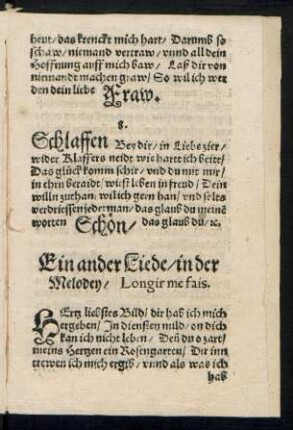 heut / das krenckt mich hart / Darumb so
schaw / niemand vertraw / vnnd all dein
Hoffnung auff mich baw / Laß dir von
niemandt machen graw / So wil ich wer
den dein liebe Fraw.
8.
Schlaffen Bey dir / in Liebs zier /
wider Klaffers neidt wie hartt ich beitt /
Das glück komm schir / vnd du mit mir /
in ehrn beraidt / wüst leben in freud / Dein
willn zuthan: wil ich gern han / vnd solts
verdriessen jederman / das glaub du meinē
wortten Schön / das glaub du / ⁊c.
Ein ander Liede / in der
Melodey / Longir me fais.
HErtz liebstes Bild / dir hab ich mich
ergeben / In diensten mild / on dich
kan ich nicht leben / Deñ du o zart /
meins Hertzen ein Rosengarten / Dir inn
trewen ich mich ergib / vnnd als was ich
hab